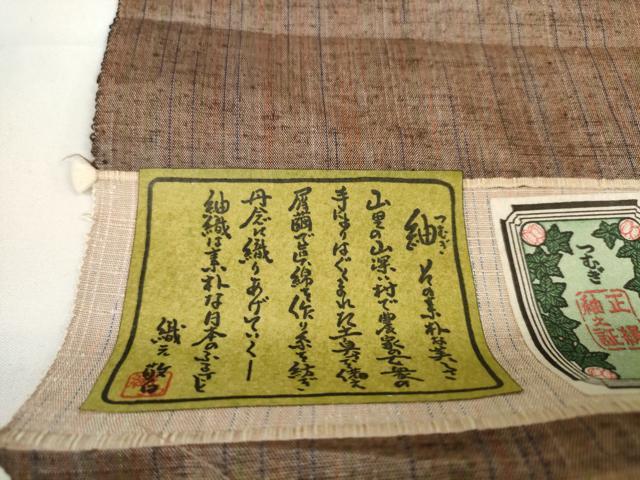 つむぎ
紬 その素朴な美しさ
山里の山深い村で農家の
手によりはぐくまれた
屑繭で真綿を作り糸を紡ぎ
丹念に織りあげていく—
紬織は素朴な日本のふるさと
織元
つむぎ
正
紬之証